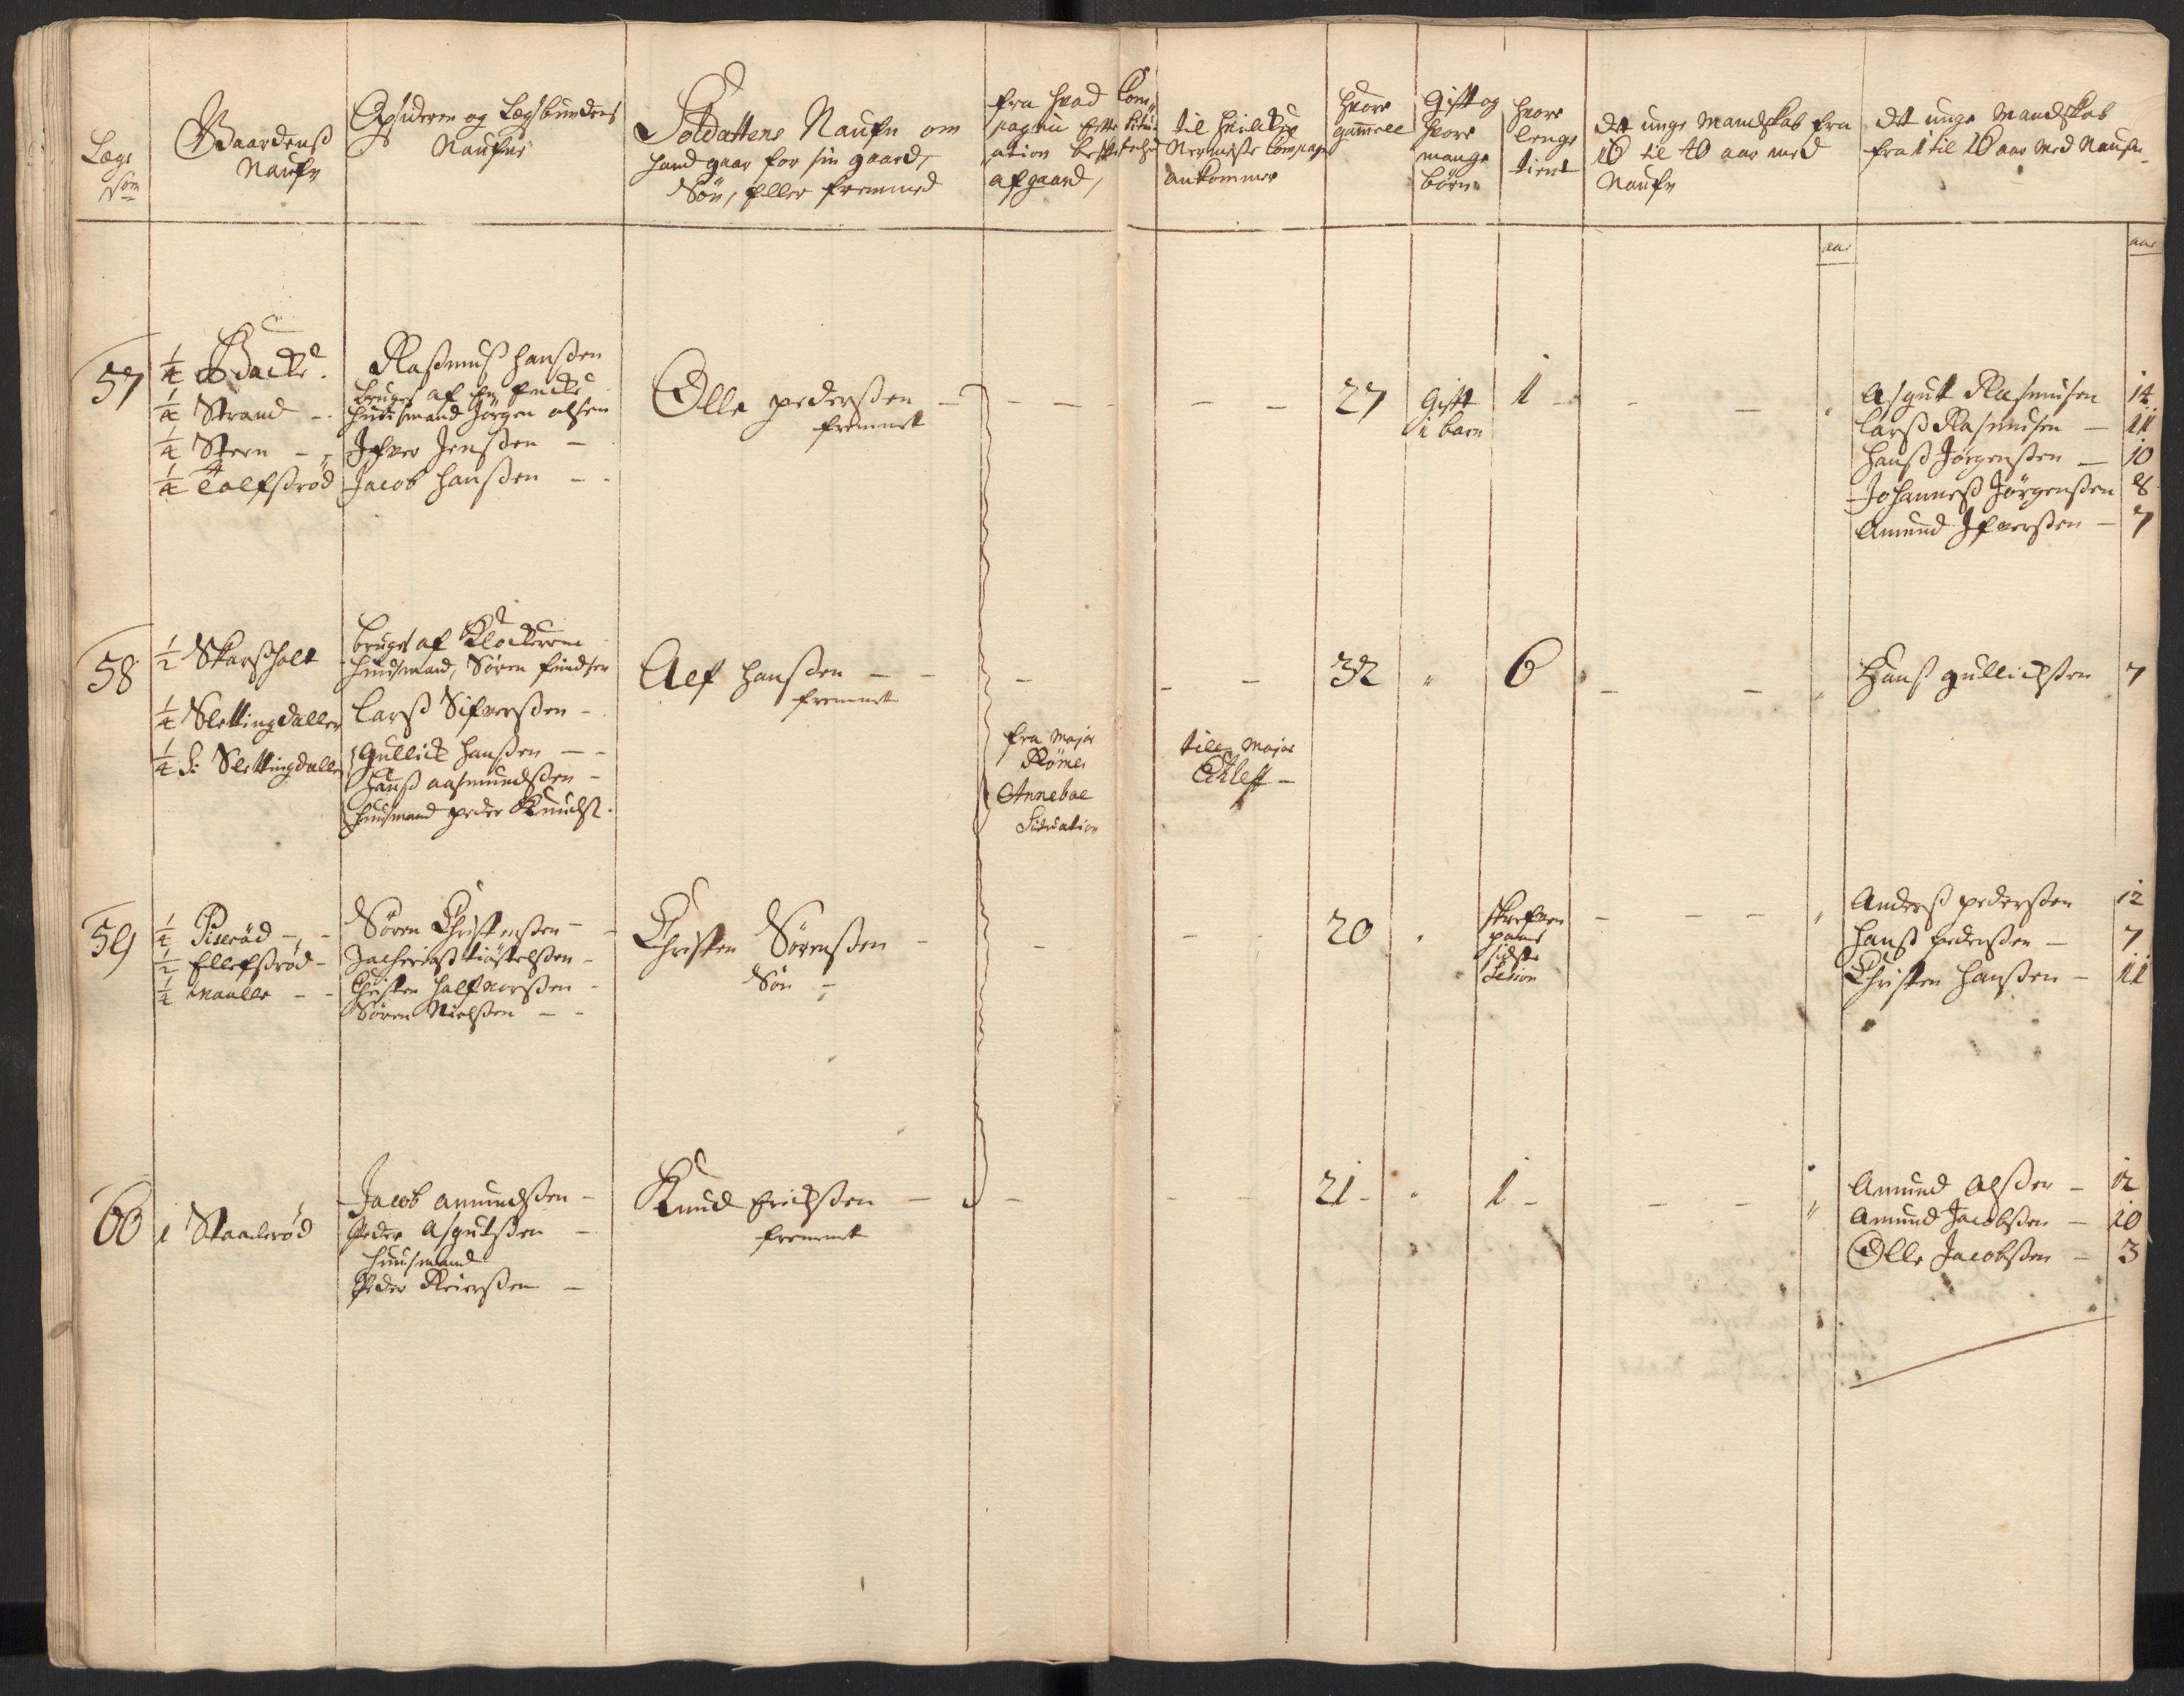 Lægs
No
Gaardenß
Naufn
Opsideren og Lægsbundens
Naufne
Soldattens Naufn om
hand gaar for sin gaard,
Søn, eller fremmed
fra hvad Com¬
pagnie efter Situ
ation beste
afgaard,
til hvilcke
Nermeste Compag
ankommer
hvor
gammell
Gift og
hvor
mange
børn
hvor
lenge
tient
det unge Mandskab fra
16 til 40 aar med
Naufn
det unge Mandskab
fra 1 til 16 aar med Naufn
aar
aar
57
1/4 Backe
1/4 Strand
1/4 Steen
1/4 Tolfsrød
Rasmuß Hanßen
bruges af en Encke
huusmand Jørgen olsen
Ifver Jenßen
Jacob Hanßen
Olle pederßen
fremmet
27
Gift
1 barn
1
Asgut Rasmusen 14
Larß Rasmusen 11
Hanß Jørgenßen 10
Johanneß Jørgenßen 8
Amund Ifverßen 7
58
1/2 Skarßholt
1/4 Slettingdallen
1/4 S: Slettingdallen
bruges af Klockeren
huusmand, Søren
Larß Sifverßen
Gullick Hanßen
Hanß aasmundßen
Huusmand peder Knudß
Alf Hanßen
fremmet
fra Major
Rømer
Annebae
Situation
till Major
32
6
Hanß gullichßen 7
59
1/4 Piserød
1/2 Ellefsrød
1/4 Naalle
Søren Christenßen
Zacheriaß
Christen Halfvorßen
Søren Nielßen
Christen Sørenßen
Søn
20
skrefven
paa
sidste
Sesion
Anderß pederßen 12
Hanß pederßen 7
Christen Hanßen 11
60
1 Staalerød
Jacob amundßen
Peder Asgutßen
huusmand
Peder Reierßen
Knud Erichßen
fremmet
21
1
Amund olßen 12
Amund Jacobßen 10
Olle Jacobßen 3